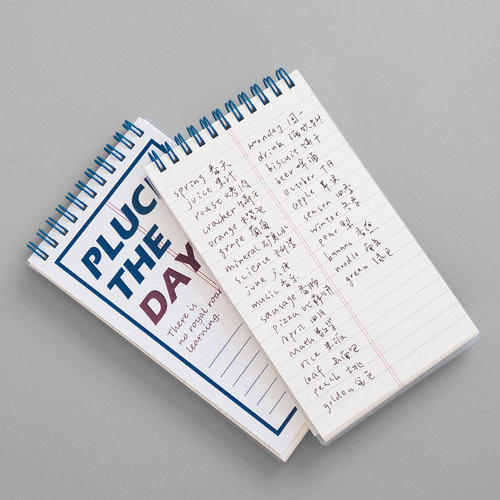 PLUCK
THE
DAY
There is
no royal road
learning.
spring 春天
juice 果汁
roast 烤肉
cracker 饼干
orange 橙色
grape 葡萄
mineral
science 科学
june 六月
music 音乐
sausage 香肠
pizza 比萨饼
April 四月
math 数学
rice 米饭
loaf 面包
peach 桃
golden 金色
monday 周一
drink 饮料
biscuit 饼干
beer 啤酒
october 十月
apple 苹果
season 四季
winter 冬天
pear 梨
banana 香蕉
noodle 面条
green 绿色